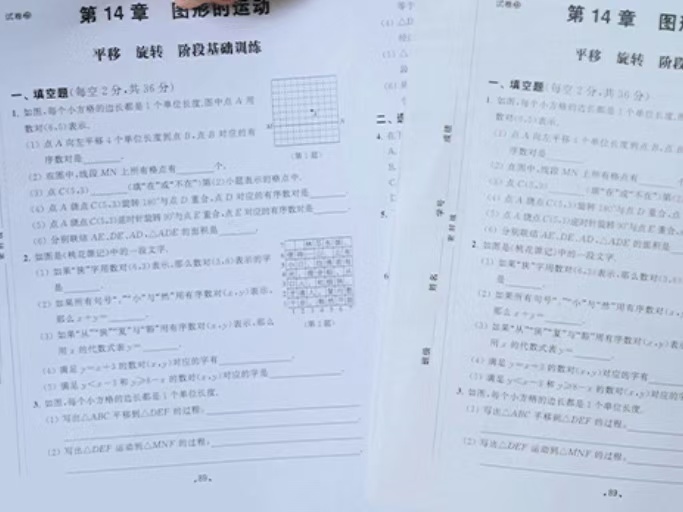 试卷
第14章 图形的运动
平移 旋转 阶段基础训练
一、填空题(每空2分,共36分)
1. 如图,每个小方格的边长都是1个单位长度,图中点A用
数对(6,5)表示.
(1) 点A向左平移4个单位长度到点B,点B对应的有
序数对是
(2) 在图中,线段MN上所有格点有 个.
(3) 点C(5,3) (填“在”或“不在”)第(2)小题表示的格点中.
(4) 点A绕点C(5,3)旋转180°与点D重合,点D对应的有序数对是
(5) 点A绕点C(5,3)逆时针旋转90°与点E重合,点E对应的有序数对是
(6) 分别联结AE、DE、AD,△ADE的面积是
M N
(第1题)
2. 如图是《桃花源记》中的一段文字.
(1) 如果“狭”字用数对(6,3)表示,那么数对(3,8)表示的字
是
(2) 如果所有句号“。”“小”与“然”用有序数对(x,y)表示,
那么x+y=
(3) 如果“从”“狭”“复”与“豁”用有序数对(x,y)表示,那么
用x的代数式表y=
(4) 满足y=x+3的数对(x,y)对应的字有
(5) 满足y<x-5和y≥8-x的数对(x,y)对应的字是
(第2题)
3. 如图,每个小方格的边长都是1个单位长度.
(1) 写出△ABC平移到△DEF的过程:
(2) 写出△DEF运动到△MNF的过程:
·89·
二、选
4. 在下
A.
B.
C.
5.
6
成绩
学号
姓名
班级
试卷
第14章 图形
平移 旋转 阶段
一、填空题(每空2分,共36分)
1. 如图,每个小方格的边长都是1个单位长度,
数对(6,5)表示.
(1) 点A向左平移4个单位长度到点B,点B
序数对是
(2) 在图中,线段MN上所有格点有
(3) 点C(5,3) (填“在”或“不在”)第(2)
(4) 点A绕点C(5,3)旋转180°与点D重合,点
(5) 点A绕点C(5,3)逆时针旋转90°与点E重合,
(6) 分别联结AE、DE、AD,△ADE的面积是
2. 如图是《桃花源记》中的一段文字.
(1) 如果“狭”字用数对(6,3)表示,那么数对(3,8)
是
(2) 如果所有句号“。”“小”与“然”用有序数对(x,
那么x+y=
(3) 如果“从”“狭”“复”与“豁”用有序数对(x,y)表
用x的代数式表y=
(4) 满足y=x+3的数对(x,y)对应的字有
(5) 满足y<x-5和y≥8-x的数对(x,y)对应的字
3. 如图,每个小方格的边长都是1个单位长度.
(1) 写出△ABC平移到△DEF的过程:
(2) 写出△DEF运动到△MNF的过程:
·89·